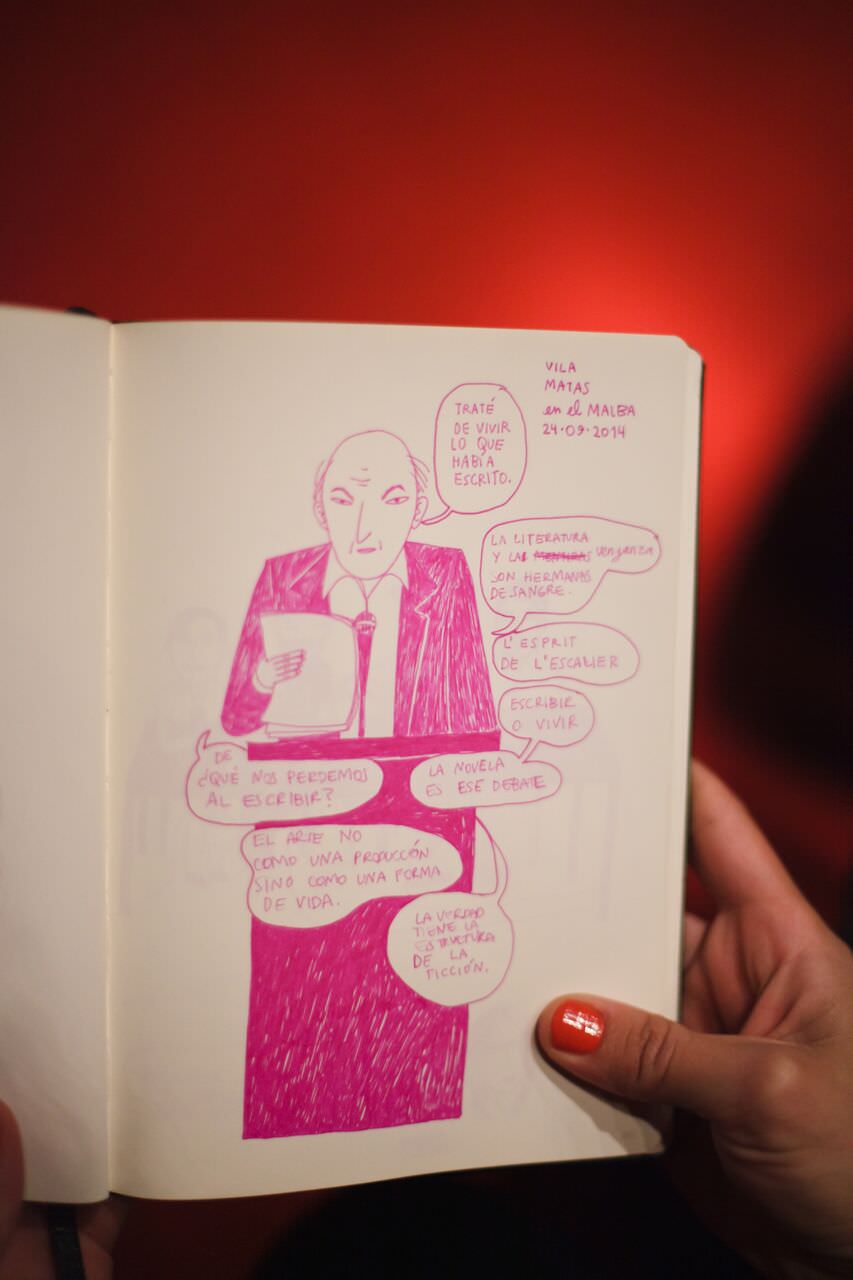 VILA
MATAS
en el MALBA
24·09·2014
TRATÉ
DE VIVIR
LO QUE
HABÍA
ESCRITO.
LA LITERATURA
Y LA venganza
SON HERMANAS
DE SANGRE.
L'ESPRIT
DE L'ESCALIER
ESCRIBIR
O VIVIR
LA NOVELA
ES ESE DEBATE
DE
¿QUÉ NOS PERDEMOS
AL ESCRIBIR?
EL ARTE NO
COMO UNA PRODUCCIÓN
SINO COMO UNA FORMA
DE VIDA.
LA VERDAD
TIENE LA
ESTRUCTURA
DE LA
FICCIÓN.